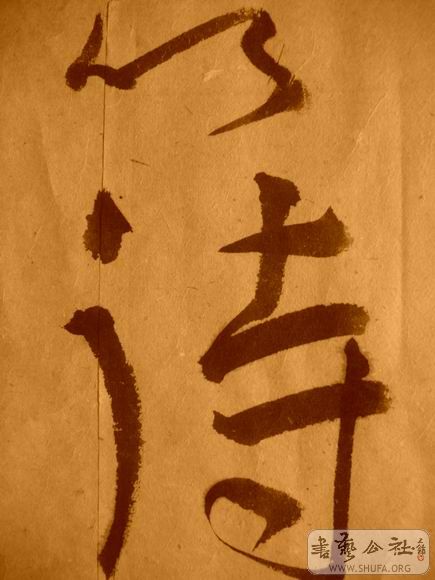 以
待
書藝公社
WWW.SHUFA.ORG